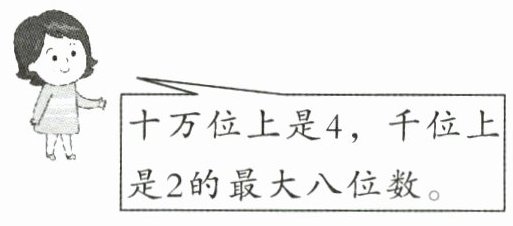 十万位上是4，千位上
是2的最大八位数。